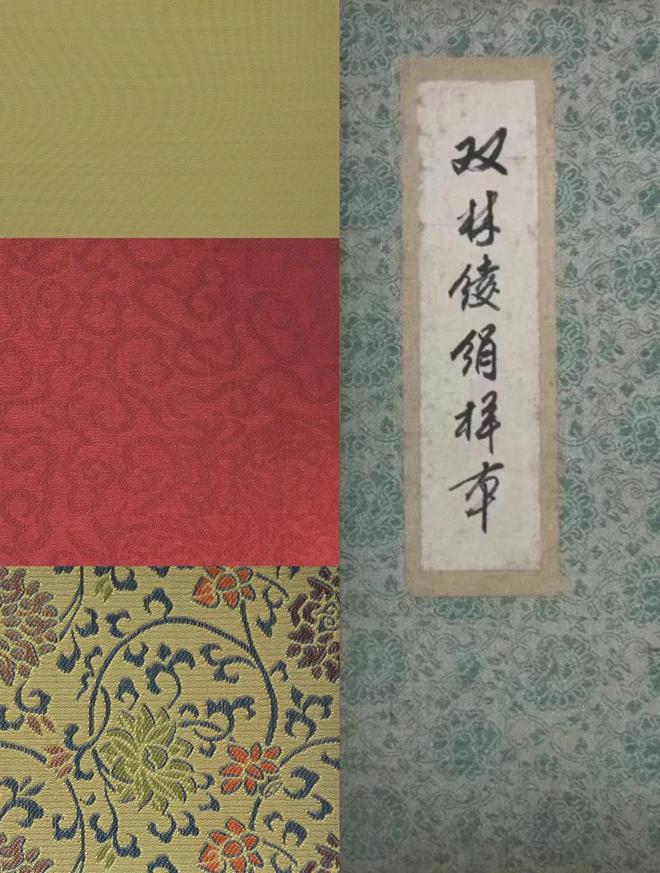 双林绫绢样本